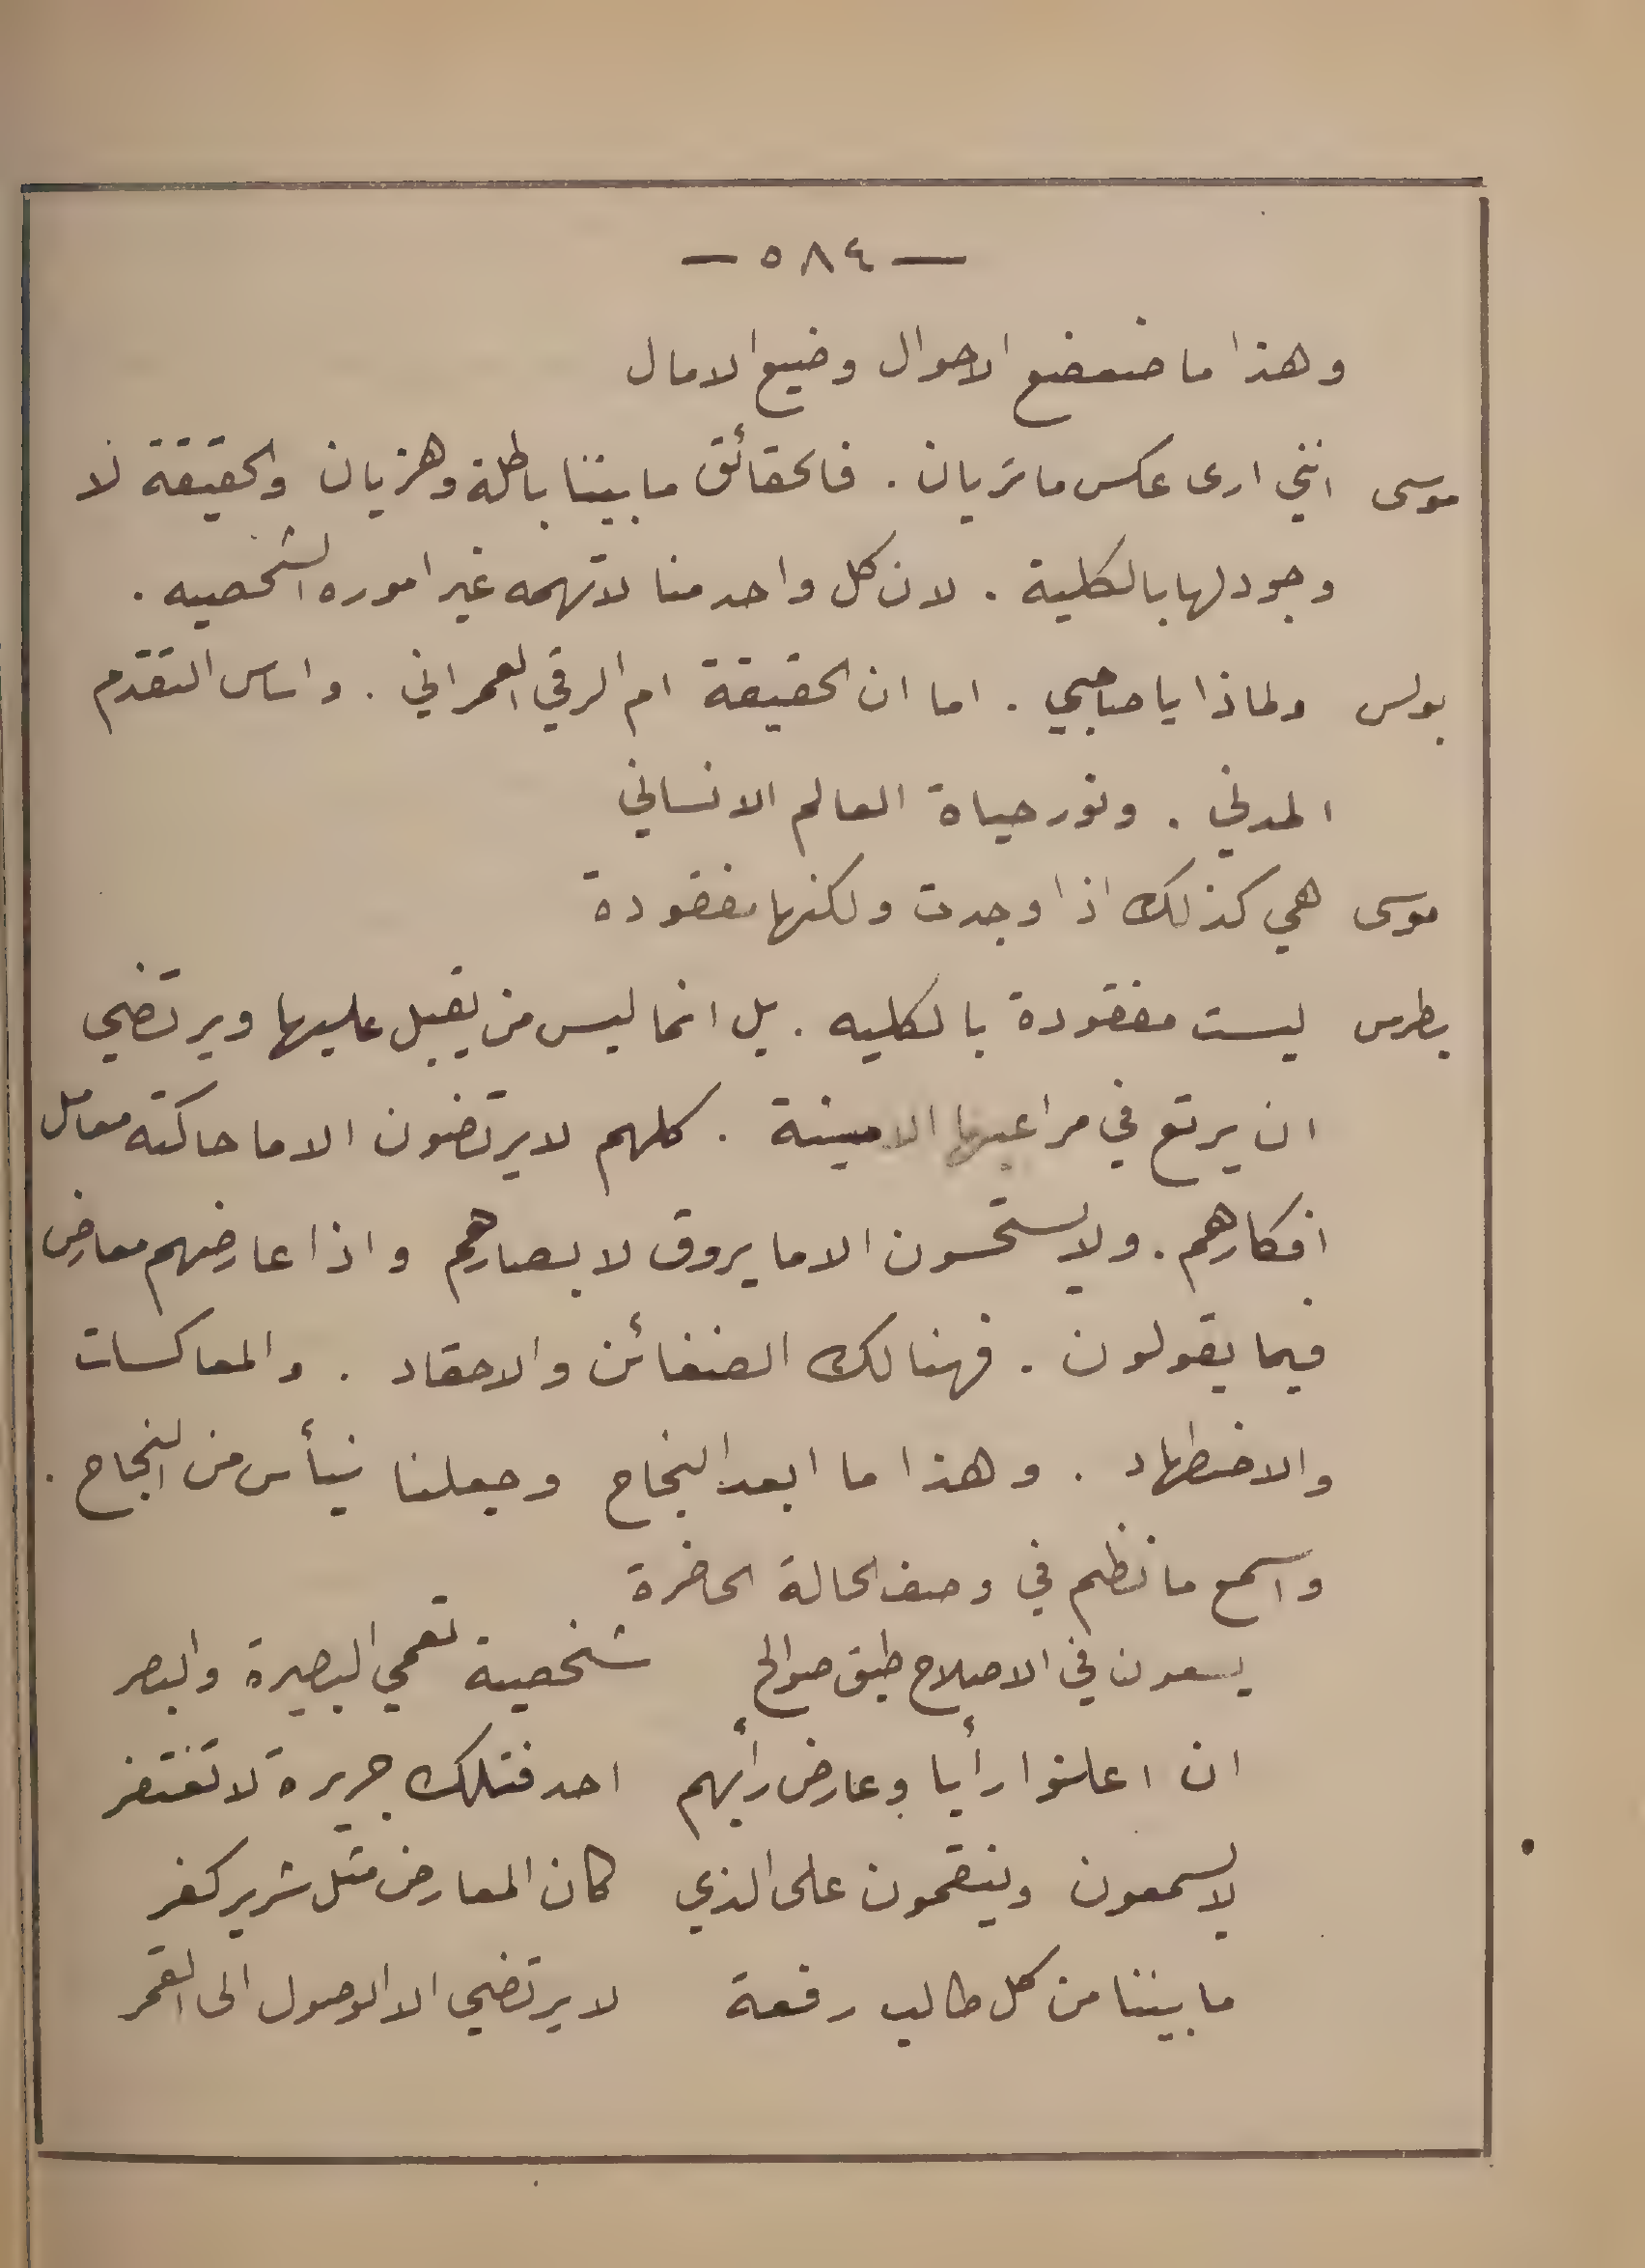 — ٥٨٤ —
وهذا ما ضعضع الاحوال وضيع الامال
موسى انني ارى عكس ما تريان . فالحقائق ما بيننا باطلة وهزيان والحقيقة لا
وجود لها بالكلية . لان كل واحد منا لا تهمه غير اموره الشخصيه .
بولس ولماذا يا صاحبي . اما ان الحقيقة ام الرقي العمراني . واساس التقدم
المدني . ونور حياة العالم الانساني
موسى هي كذلك اذا وجدت ولكنها مفقودة
بطرس ليست مفقودة بالكليه . بل انما ليس من يقبل عليها ويرتضي
ان يرتع في مراعيها الامينة . كلهم لا يرتضون الا ما حاكته معامل
افكارهم . ولا يستحسون الا ما يروق لابصارهم واذا عارضهم معارض
فيما يقولون . فهنالك الضغائن والاحقاد . والمعاكسات
والاضطهاد . وهذا ما ابعد النجاح وجعلنا نيأس من النجاح .
واسمع ما نظم في وصف الحالة الحاضرة
يسعون في الاصلاح طبق صوالح شخصية تعمي البصيرة والبصر
ان اعلنوا رأيا وعارض رأيهم احد فتلك جريرة لا تغتفر
لا يسمعون وينقمون على الذي كان المعارض مثل شرير كفر
ما بيننا من كل طالب رفعة لا يرتضي الا الوصول الى القمر